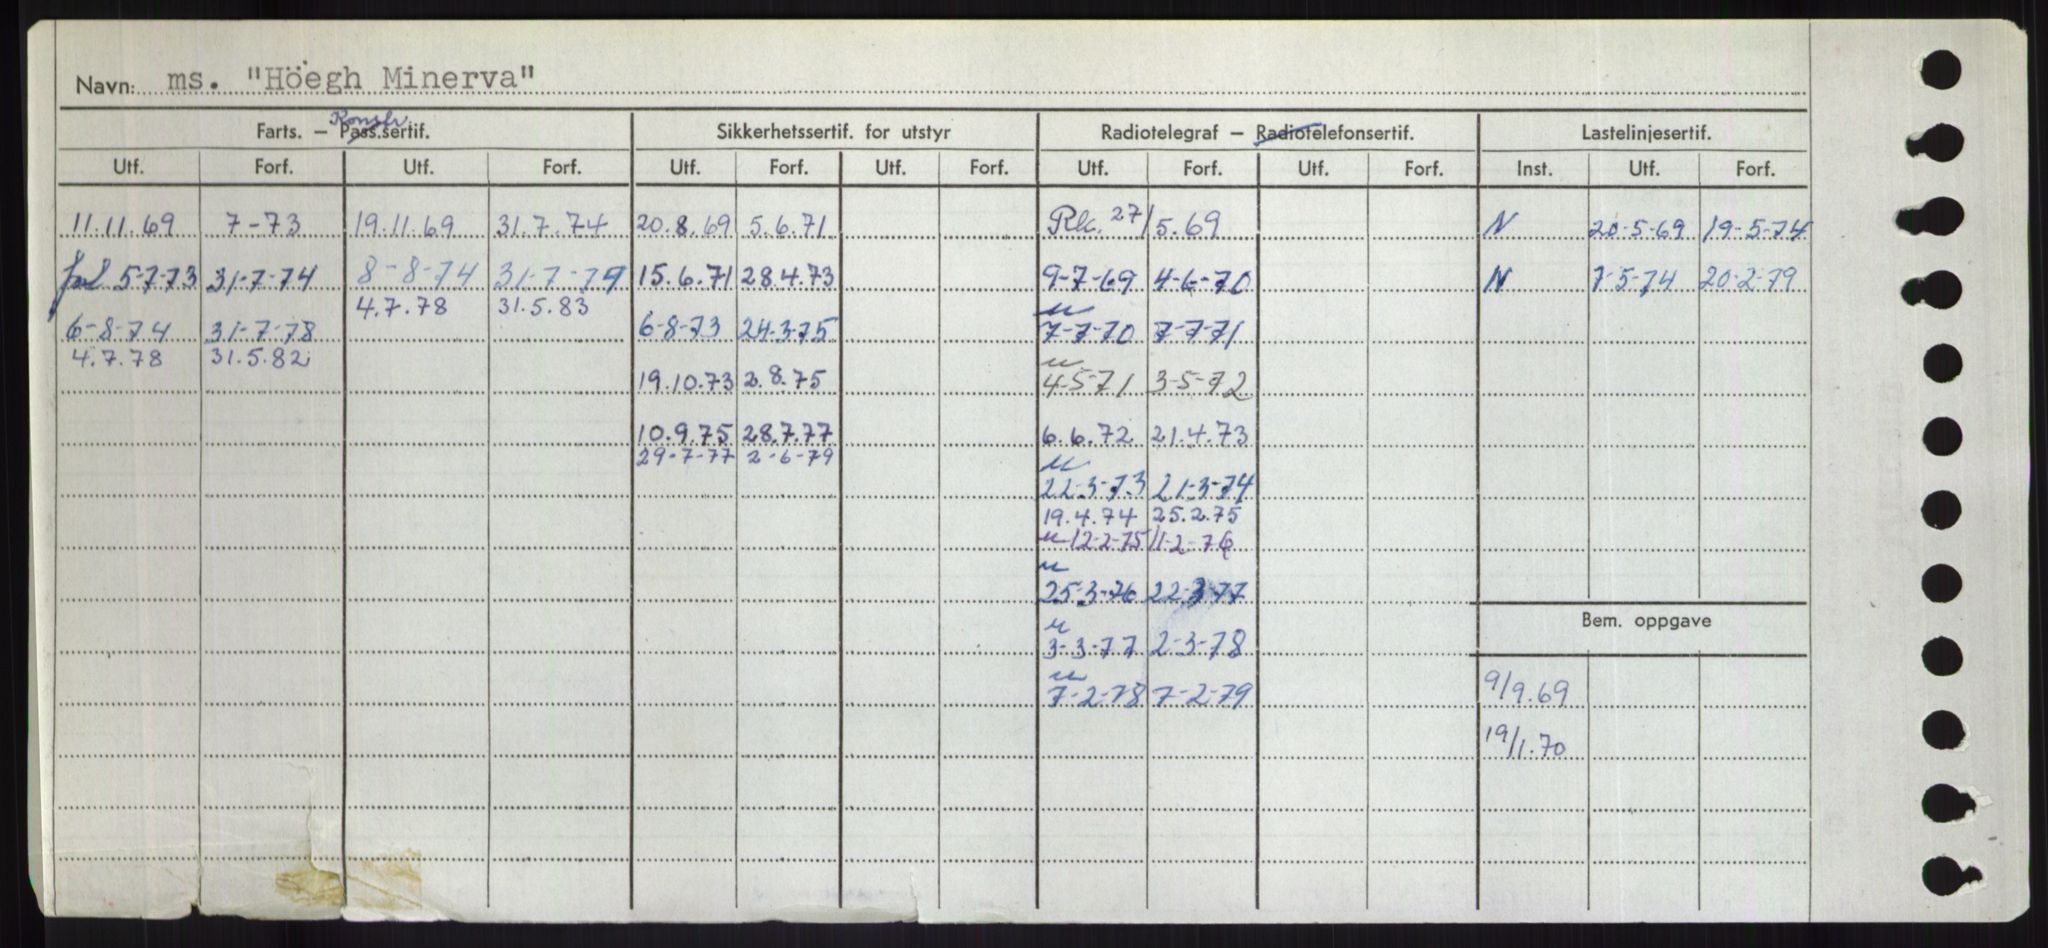 Navn: ms. "Höegh Minerva"
Konstr.
Farts. – Pass.sertif. Sikkerhetssertif. for utstyr Radiotelegraf – Radiotelefonsertif. Lastelinjesertif.
Utf. Forf. Utf. Forf. Utf. Forf. Utf. Forf. Utf. Forf. Utf. Forf. Inst. Utf. Forf.
11.11.69 7-73 19.11.69 31.7.74 20.8.69 5.6.71 Rk. 27/5.69 N 20-5-69 19-5-74
5-7-73 31-7-74 8-8-74 31-7-79 15.6.71 28.4.73 9-7-69 4-6-70 N 7-5-74 20-2-79
4.7.78 31.5.83
6-8-74 31-7-78 6-8-73 24-3-75 7-7-70 7-7-71
4.7.78 31.5.82
19.10.73 2.8.75 4-5-71 3-5-72
10.9.75 28.7.77 6.6.72 21.4.73
29-7-77 2-6-79
22-3-73 21-3-74
19.4.74 25.2.75
12-2-75 11-2-76
25-3-76 22-3-77
Bem. oppgave
3-3-77 2-3-78
7-2-78 7-2-79 9/9.69
19/1.70